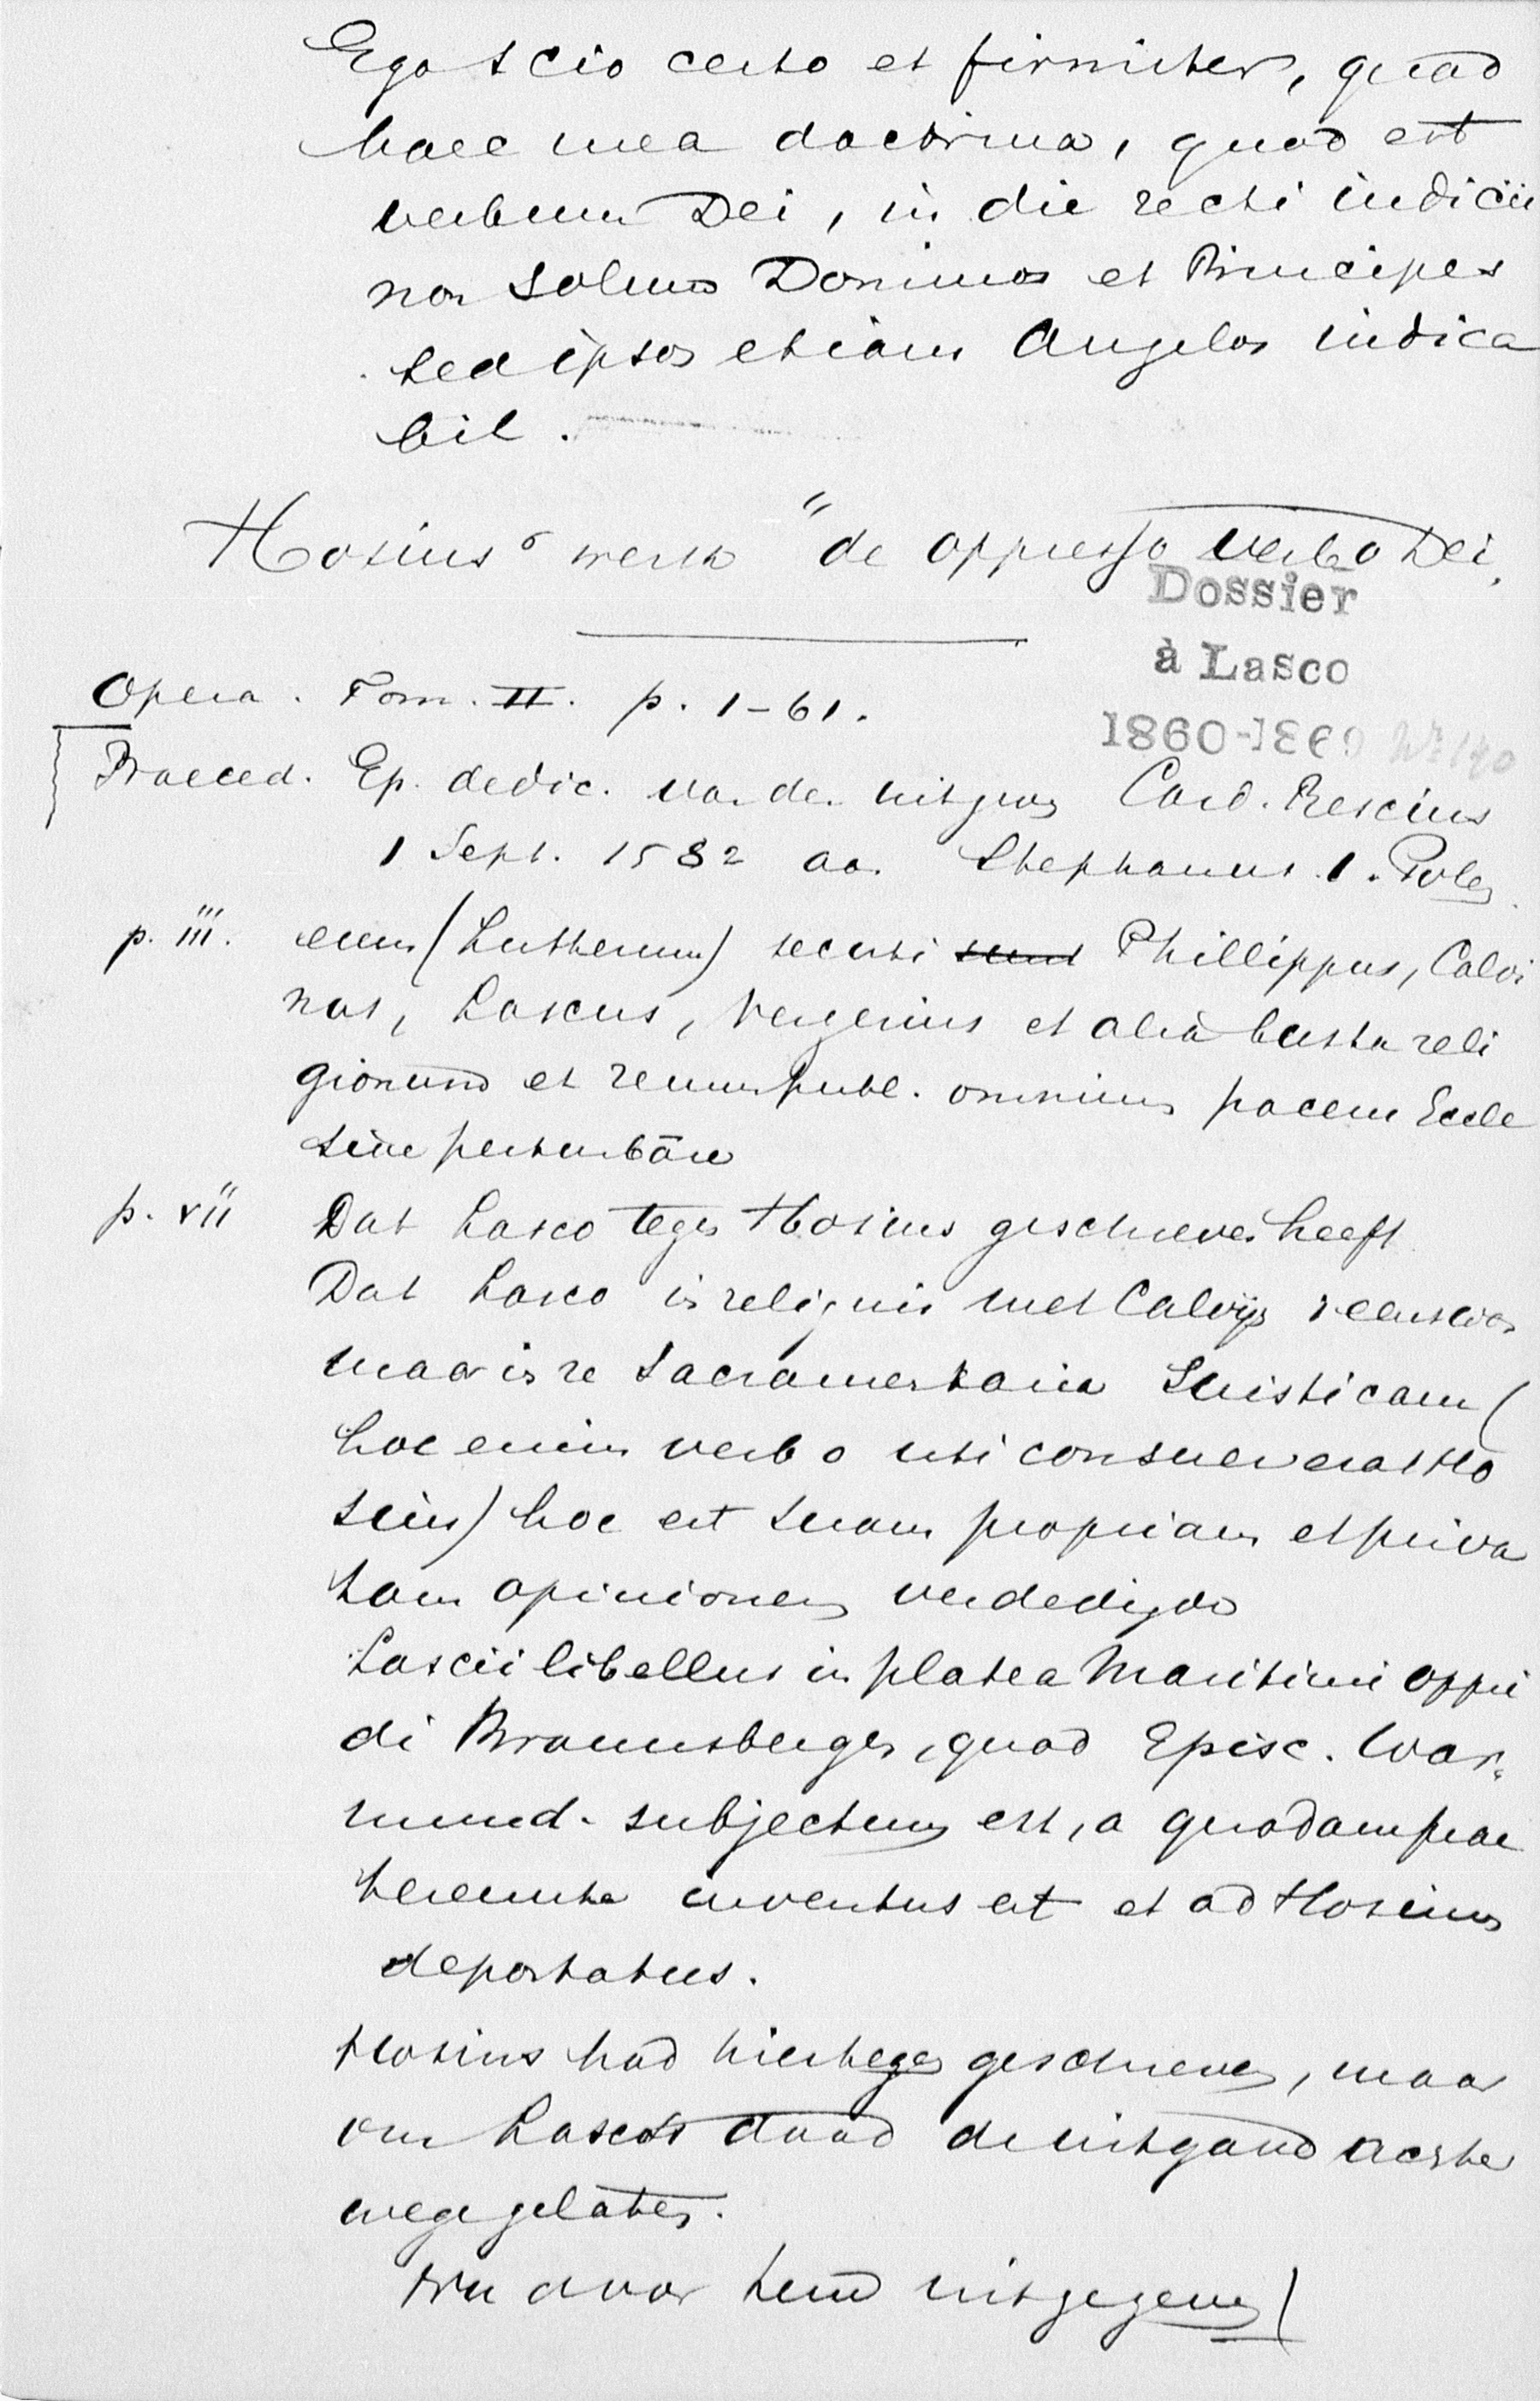 Ego scio certo et firmiter, quod
haec mea doctrina, quod est
verbum Dei, in die recti iudicii
non solum Dominos et Principes
sed ipsos etiam Angelos iudica
bit.
Hosius' werk "de oppresso verbo Dei,
Dossier
à Lasco
1860-1869 N° 140
Opera. Tom. II. p. 1-61.
Praeced. Ep. dedic. van den uitgever Card. Rescius
1 Sept. 1582 aan Stephanus I. Polen
p. iii. eum (Lutherum) secuti sunt Phillippus, Calvi
nus, Lascus, Vergerius et alia busta reli
gionum et rerumpubl. omnium pacem Eccle
siae perturbare
p. vii Dat Lasco tegen Hosius geschreven heeft
Dat Lasco in reliquis met Calvijn was
maar in re Sacramentaria Suisticam (
hoc enim verbo uti consueverat Ho
sius) hoc est suam propriam et priva
tam opinionem verdedigde
Lascii libellus in platea Maritimi oppi
di Braunsbergen, quod Episc. War.
miend. subjectum est, a quodam prae
tereunte inventus est et ad Hosium
deportatus.
Hosius had hiertegen geschreven, maar
om Lasco's dood de uitgaud achter
wege gelaten.
Nu door hem uitgegeven)